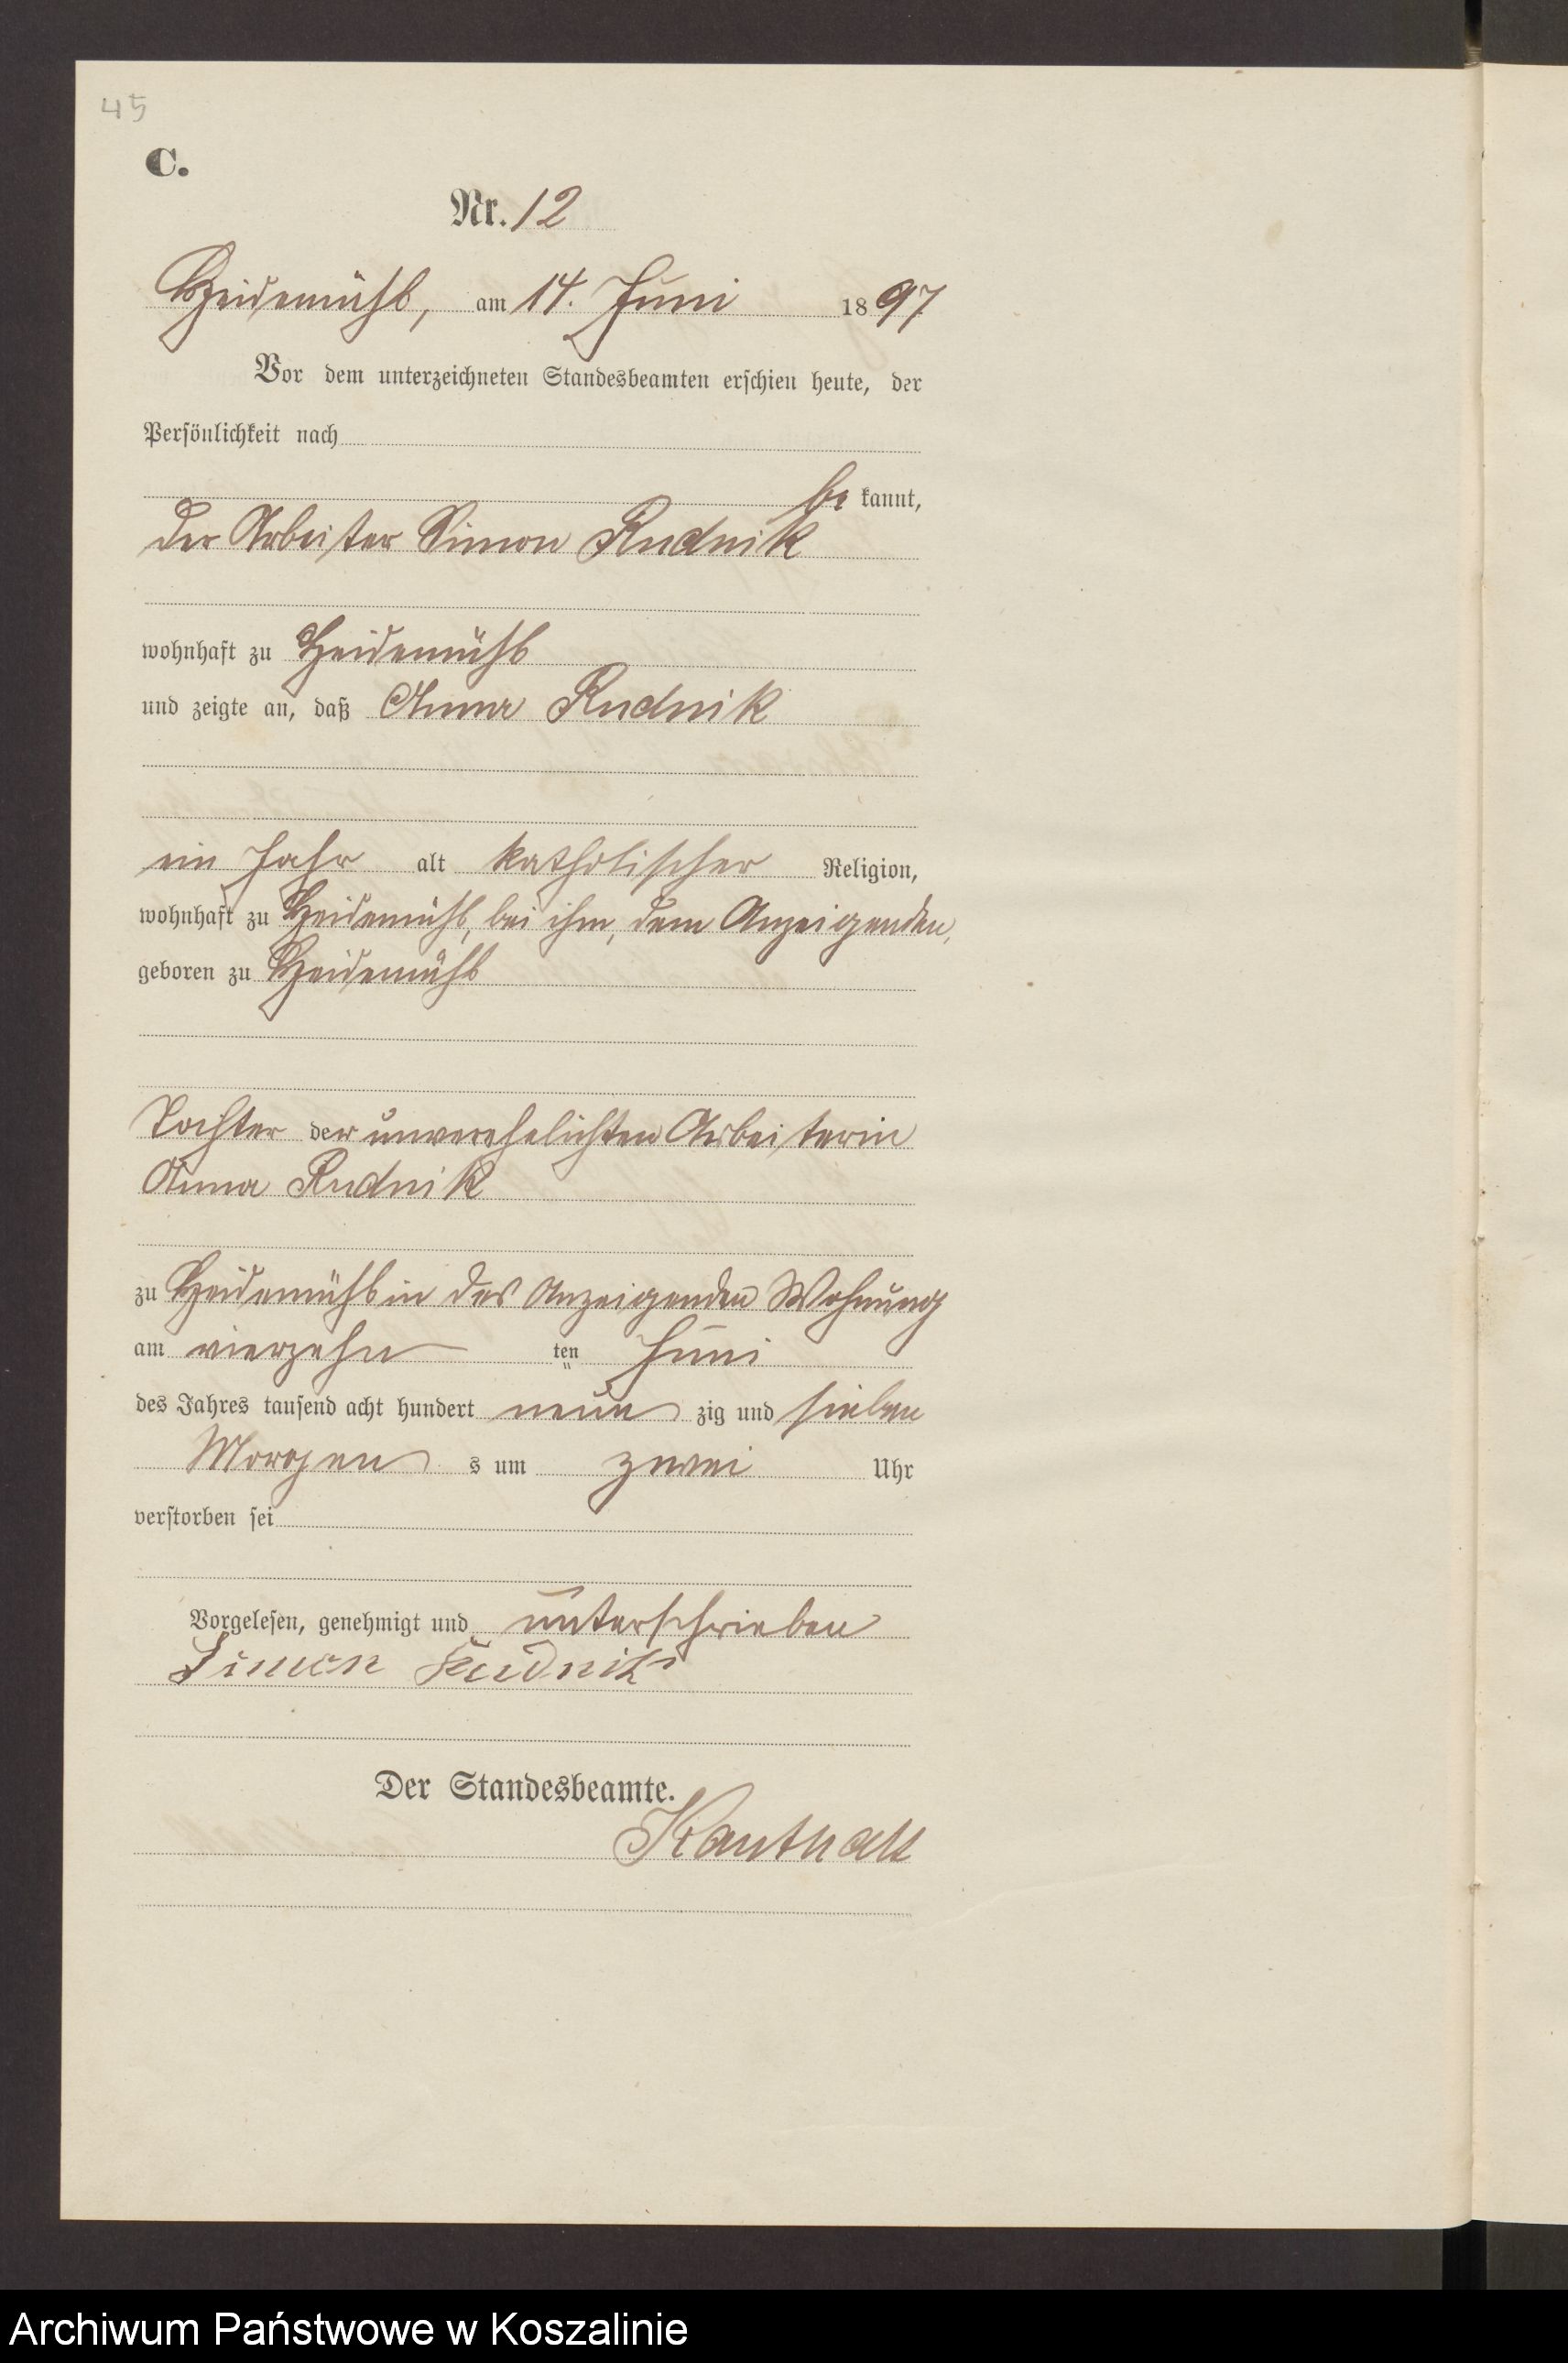 45
C.
Nr. 12
Heidemühl, am 14. Juni 1897
Vor dem unterzeichneten Standesbeamten erschien heute, der
Persönlichkeit nach
be kannt,
der Arbeiter Simon Rudnik
wohnhaft zu Heidemühl
und zeigte an, daß Anna Rudnik
ein Jahr alt katholischer Religion,
wohnhaft zu Heidemühl, bei ihm, dem Anzeigenden,
geboren zu Heidemühl
Tochter der unverehelichten Arbeiterin
Anna Rudnik
zu Heidemühl in des Anzeigenden Wohnung
am vierzehn ten Juni
des Jahres tausend acht hundert neun zig und sieben
Morgen s um zwei Uhr
verstorben sei
Vorgelesen, genehmigt und unterschrieben
Simon Rudnik
Der Standesbeamte.
Kauthatt
Archiwum Państwowe w Koszalinie